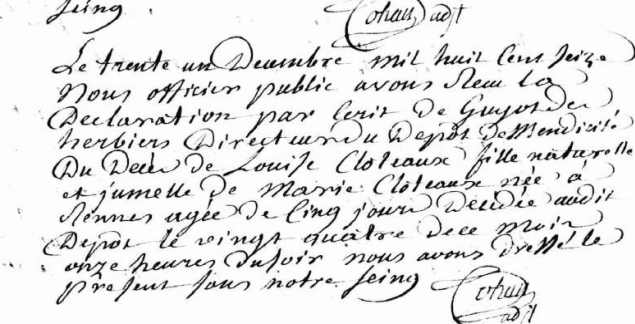 seing Cohan adjt
Le trente un Decembre mil huit Cent Seize
Nous officier public avons Recu la
Declaration par Ecrit de Guyot des
herbiers Directeur du Depot de Mendicité
Du Decès de Louise Cloteaux fille naturelle
et jumelle de Marie Clôteaux née à
Rennes agée de Cinq jours Décédée audit
Dépot le vingt quatre de ce mois
onze heures du soir nous avons dressé le
présent sous notre seing Cohan
adjt